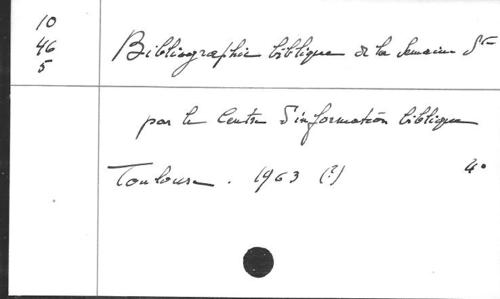 10
46
5
Bibliographie biblique de la Semaine Ste
par le Centre d'information biblique
Toulouse . 1963 (?) 4°